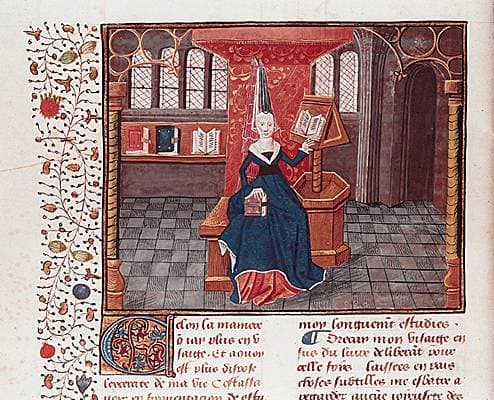 Selon la maniere
q̃ iay plus en v
saige. Et a quoy
est plus dispose
lexcercite de ma vie Cestassa
uoir en
moy longuemt estudies.
¶ Drecay mon visaige en
sus du liure deliberāt pour
celle fois laissees en pais
choses subtilles me esbatre a
regarder aucūe ioyeuste des